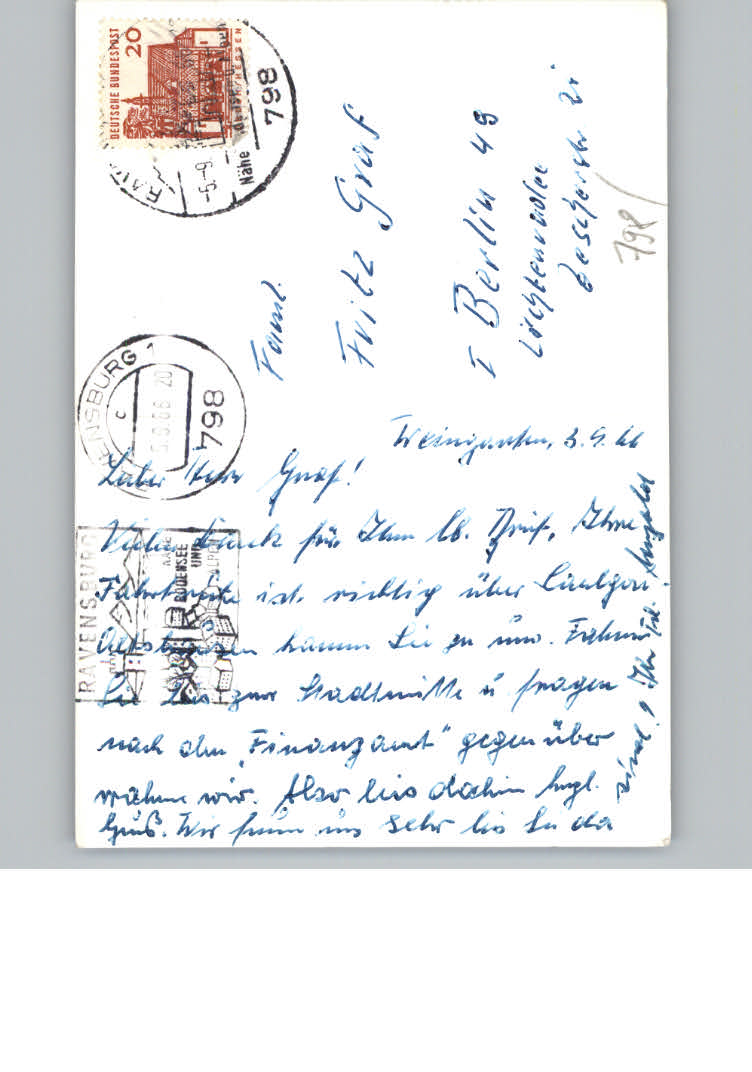 DEUTSCHE BUNDESPOST
20
HESSEN
798
-5.-9.
Nähe
RAVENSBURG 1
c
798
RAVENSBURG
NAHE
BODENSEE
UND
ALPEN
Faml.
Fritz Graf
I Berlin 49
Lichtenrade
798
Weingarten, 3.9.66
Lieber Herr Graf!
Vielen Dank für Ihren lb. Brief, Ihre
Fahrtroute ist richtig über
kommen Sie zu uns. Fahren
Sie bis zur Stadtmitte u fragen
nach dem "Finanzamt" gegenüber
wohnen wir. Also bis dahin herzl.
Gruß. Wir freuen uns sehr bis Sie da
sind. Ihr